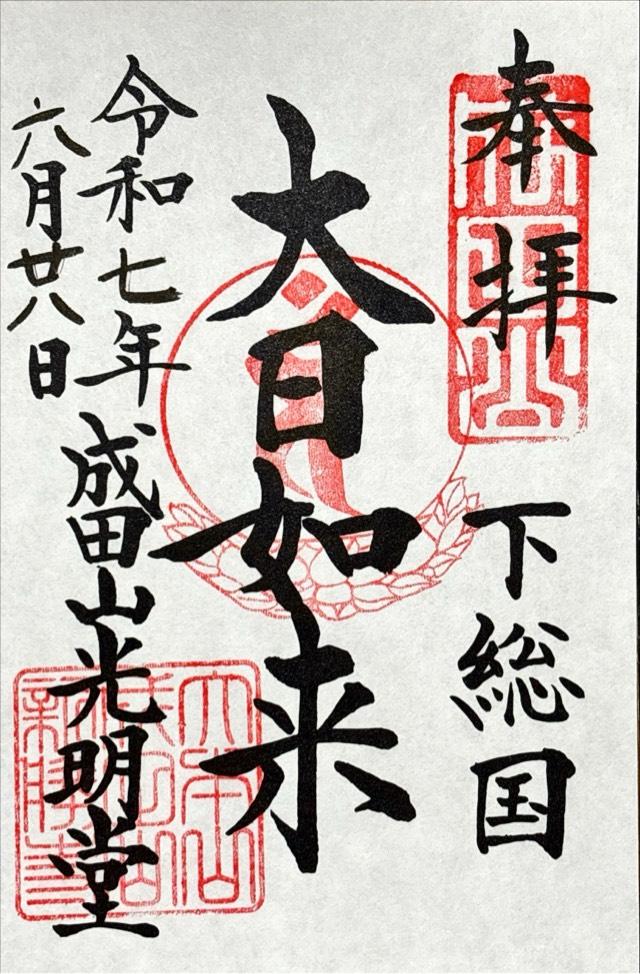 奉拝
下総国
大日如来
令和七年
六月廿八日
成田山光明堂